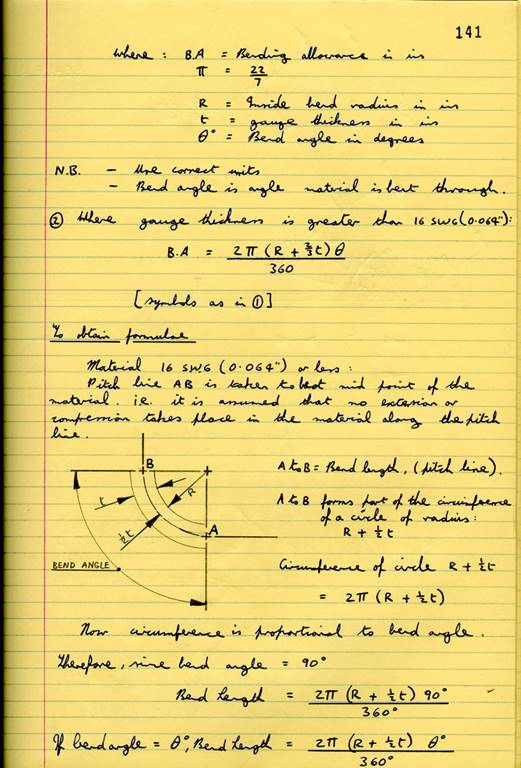 141
where : B.A = Bending allowance in ins
π = 22/7
R = Inside bend radius in ins
t = gauge thickness in ins
θ° = Bend angle in degrees
N.B. – Use correct units
– Bend angle is angle material is bent through.
② Where gauge thickness is greater than 16 SWG (0·064"):
B.A = 2π (R + ⅔t) θ / 360
[symbols as in ①]
To obtain formulae
Material 16 SWG (0·064") or less :
Pitch line AB is taken to be at mid point of the
material. i.e. it is assumed that no extension or
compression takes place in the material along the pitch
line.
B
R
t
½t
A
BEND ANGLE
A to B = Bend length, (pitch line).
A to B forms part of the circumference
of a circle of radius:
R + ½t
Circumference of circle R + ½t
= 2π (R + ½t)
Now circumference is proportional to bend angle.
Therefore, since bend angle = 90°
Bend Length = 2π (R + ½t) 90° / 360°
If bend angle = θ°, Bend Length = 2π (R + ½t) θ° / 360°